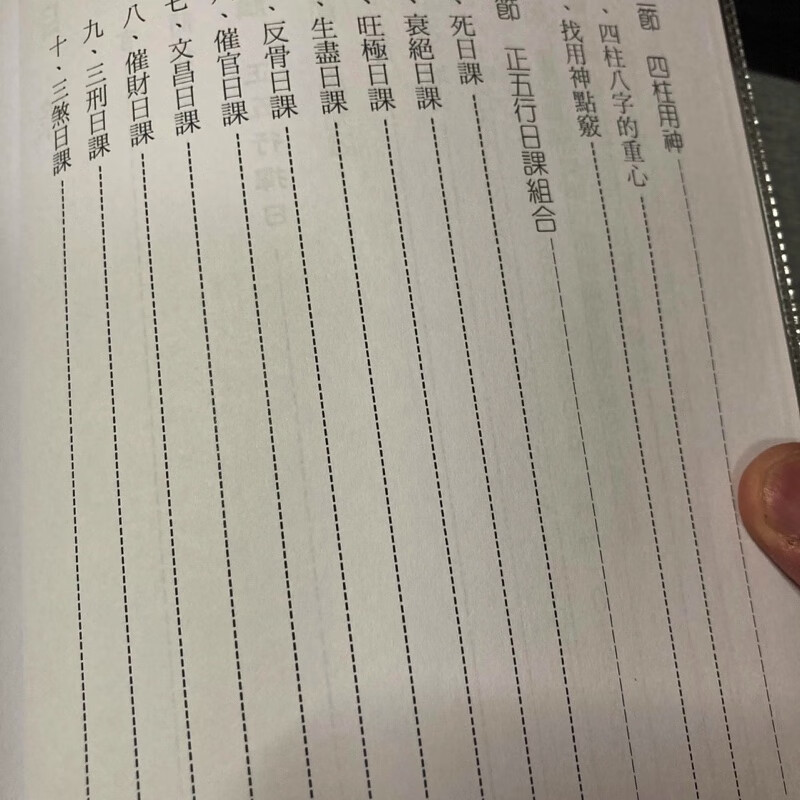 節 四柱用神
、四柱八字的重心
、找用神點竅
節 正五行日課組合
、死日課
、衰絕日課
、旺極日課
、生盡日課
、反骨日課
、催官日課
七、文昌日課
八、催財日課
九、三刑日課
十、三煞日課